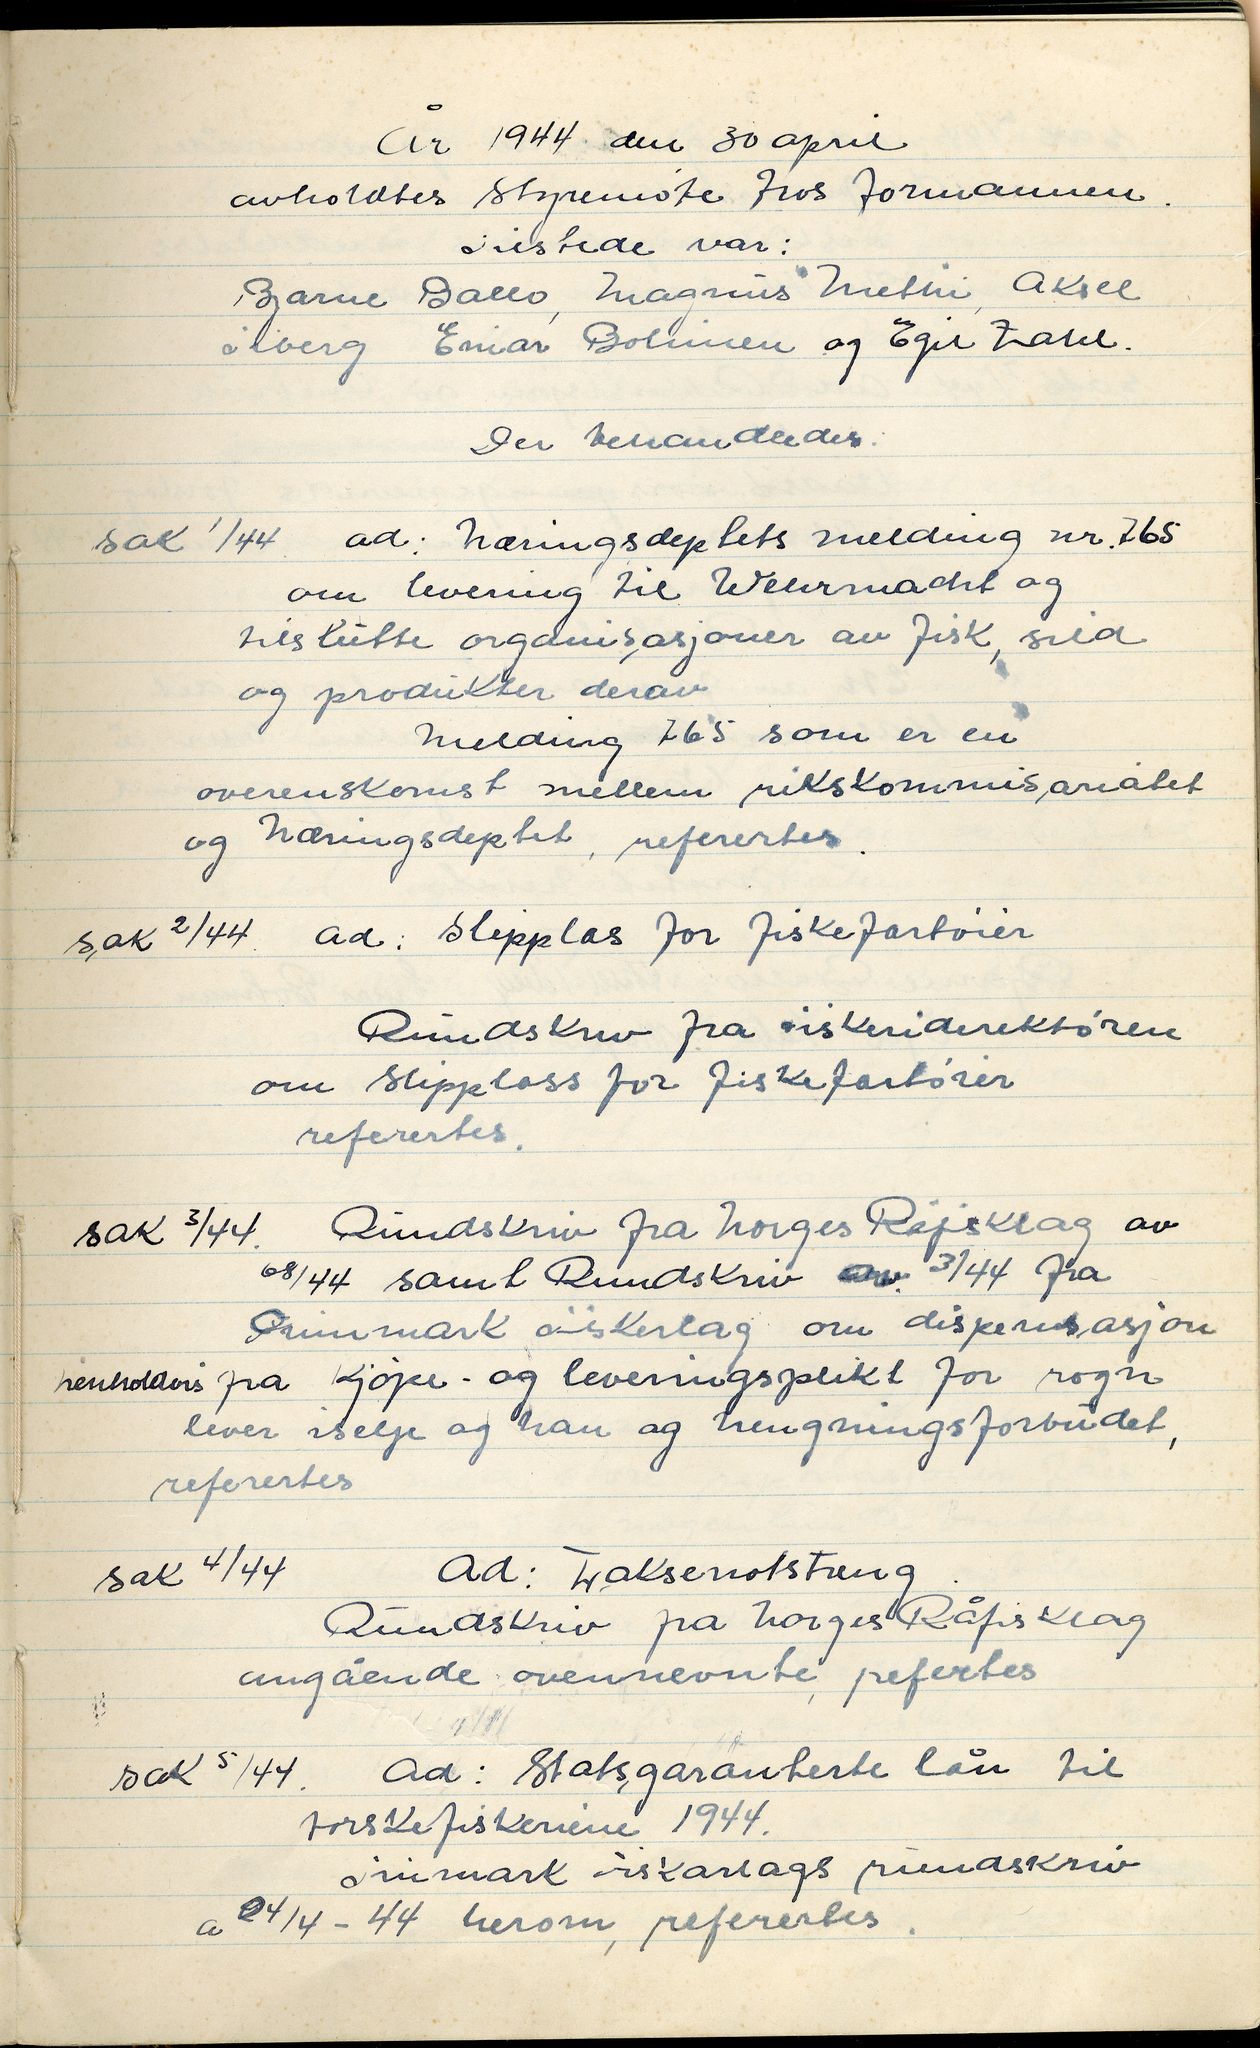 År 1944 den 30 april
avholdtes Styremöte hos formannen.
Tilstede var:
Bjarne Ballo, Magnus Methi, Aksel
Einar Bolinen og Egil Zahl.
Der behandledes:
sak 1/44. ad: Næringsdeptets melding nr. 765
om levering til Wehrmacht og
tilslutte organisasjoner av fisk, sild
og produkter derav
Melding 765 som er en
overenskomst mellem rikskommisariatet
og Næringsdeptet, referertes.
sak 2/44. ad: Slipplas for fiskefartöier
Rundskriv fra Fiskeridirektören
om Slipplass for fiskefartöier
referertes.
sak 3/44. Rundskriv fra Norges Råfisklag av
/44 samt Rundskriv av. 3/44 fra
Finnmark Fiskerlag om dispensasjon
henholdvis fra kjöpe- og leveringsplikt for rogn
lever iselje og hau og hengningsforbudet,
referertes
sak 4/44 Ad: Laksenotstreng.
Rundskriv fra Norges Råfisklag
angående ovennevnte, refertes
sak 5/44. Ad: Statsgaranterte lån til
torskefiskeriene 1944.
Finmark Fiskarlags rundskriv
a 24/4-44 herom, referertes.